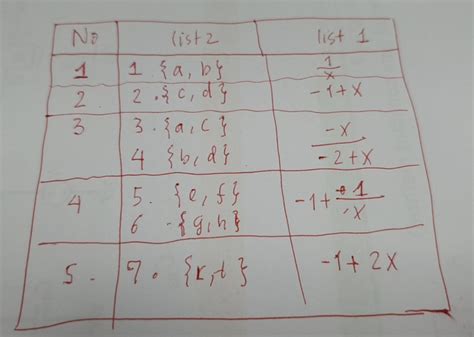 No list 2 list 1
1 1. {a, b} 1/x
2. 2. {c, d} -1+x
3 3. {a, c} -x/-2+x
4 {b, d}
4 5. {e, f} -1+ 1/x
6. {g, h}
5. 7. {k, l} -1+2x